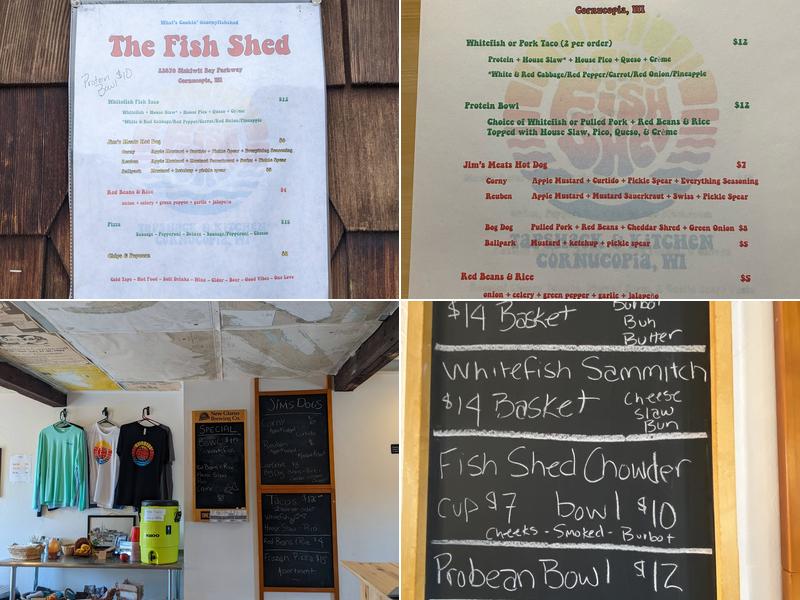 What's Cookin' @cornyfishshed
The Fish Shed
Cornucopia, WI
Protein $10
Bowl
Whitefish Fish Taco $12
Whitefish + House Slaw* + House Pico + Queso + Crème
*White & Red Cabbage/Red Pepper/Carrot/Red Onion/Pineapple
Jim's Meats Hot Dog
Corny Apple Mustard + Curtido + Pickle Spear + Everything Seasoning
Reuben Apple Mustard + Mustard Sauerkraut + Swiss + Pickle Spear
Ballpark Mustard + ketchup + pickle spear
Red Beans & Rice $4
onion + celery + green pepper + garlic + jalapeño
Pizza $15
Sausage - Pepperoni - Deluxe - Sausage/Pepperoni - Cheese
Chips & Popcorn
Cold Taps - Hot Food - Soft Drinks - Wine - Cider - Beer - Good Vibes - One Love
CORNUCOPIA, WI
Cornucopia, WI
Whitefish or Pork Taco (2 per order) $12
Protein + House Slaw* + House Pico + Queso + Crème
*White & Red Cabbage/Red Pepper/Carrot/Red Onion/Pineapple
Protein Bowl $12
Choice of Whitefish or Pulled Pork + Red Beans & Rice
Topped with House Slaw, Pico, Queso, & Crème
Jim's Meats Hot Dog $7
Corny Apple Mustard + Curtido + Pickle Spear + Everything Seasoning
Reuben Apple Mustard + Mustard Sauerkraut + Swiss + Pickle Spear
Bog Dog Pulled Pork + Red Beans + Cheddar Shred + Green Onion $8
Ballpark Mustard + ketchup + pickle spear $5
Red Beans & Rice $5
onion + celery + green pepper + garlic + jalapeño
FISH
SHED
TAPSHACK & KITCHEN
CORNUCOPIA, WI
New Glarus
Brewing Co.
SPECIAL
BOWL $10
Whitefish
Red Beans & Rice
JIM'S DOGS
Corny
Reuben
Bog Dog
Tacos $12
Whitefish
House Slaw - Pico
Red Beans & Rice $4
Frozen Pizza $15
Apartment
IGLOO
$14 Basket Burbot
Bun
Butter
Whitefish Sammitch
$14 Basket cheese
slaw
Bun
Fish Shed Chowder
cup $7 bowl $10
cheeks - Smoked - Burbot
Probean Bowl $12